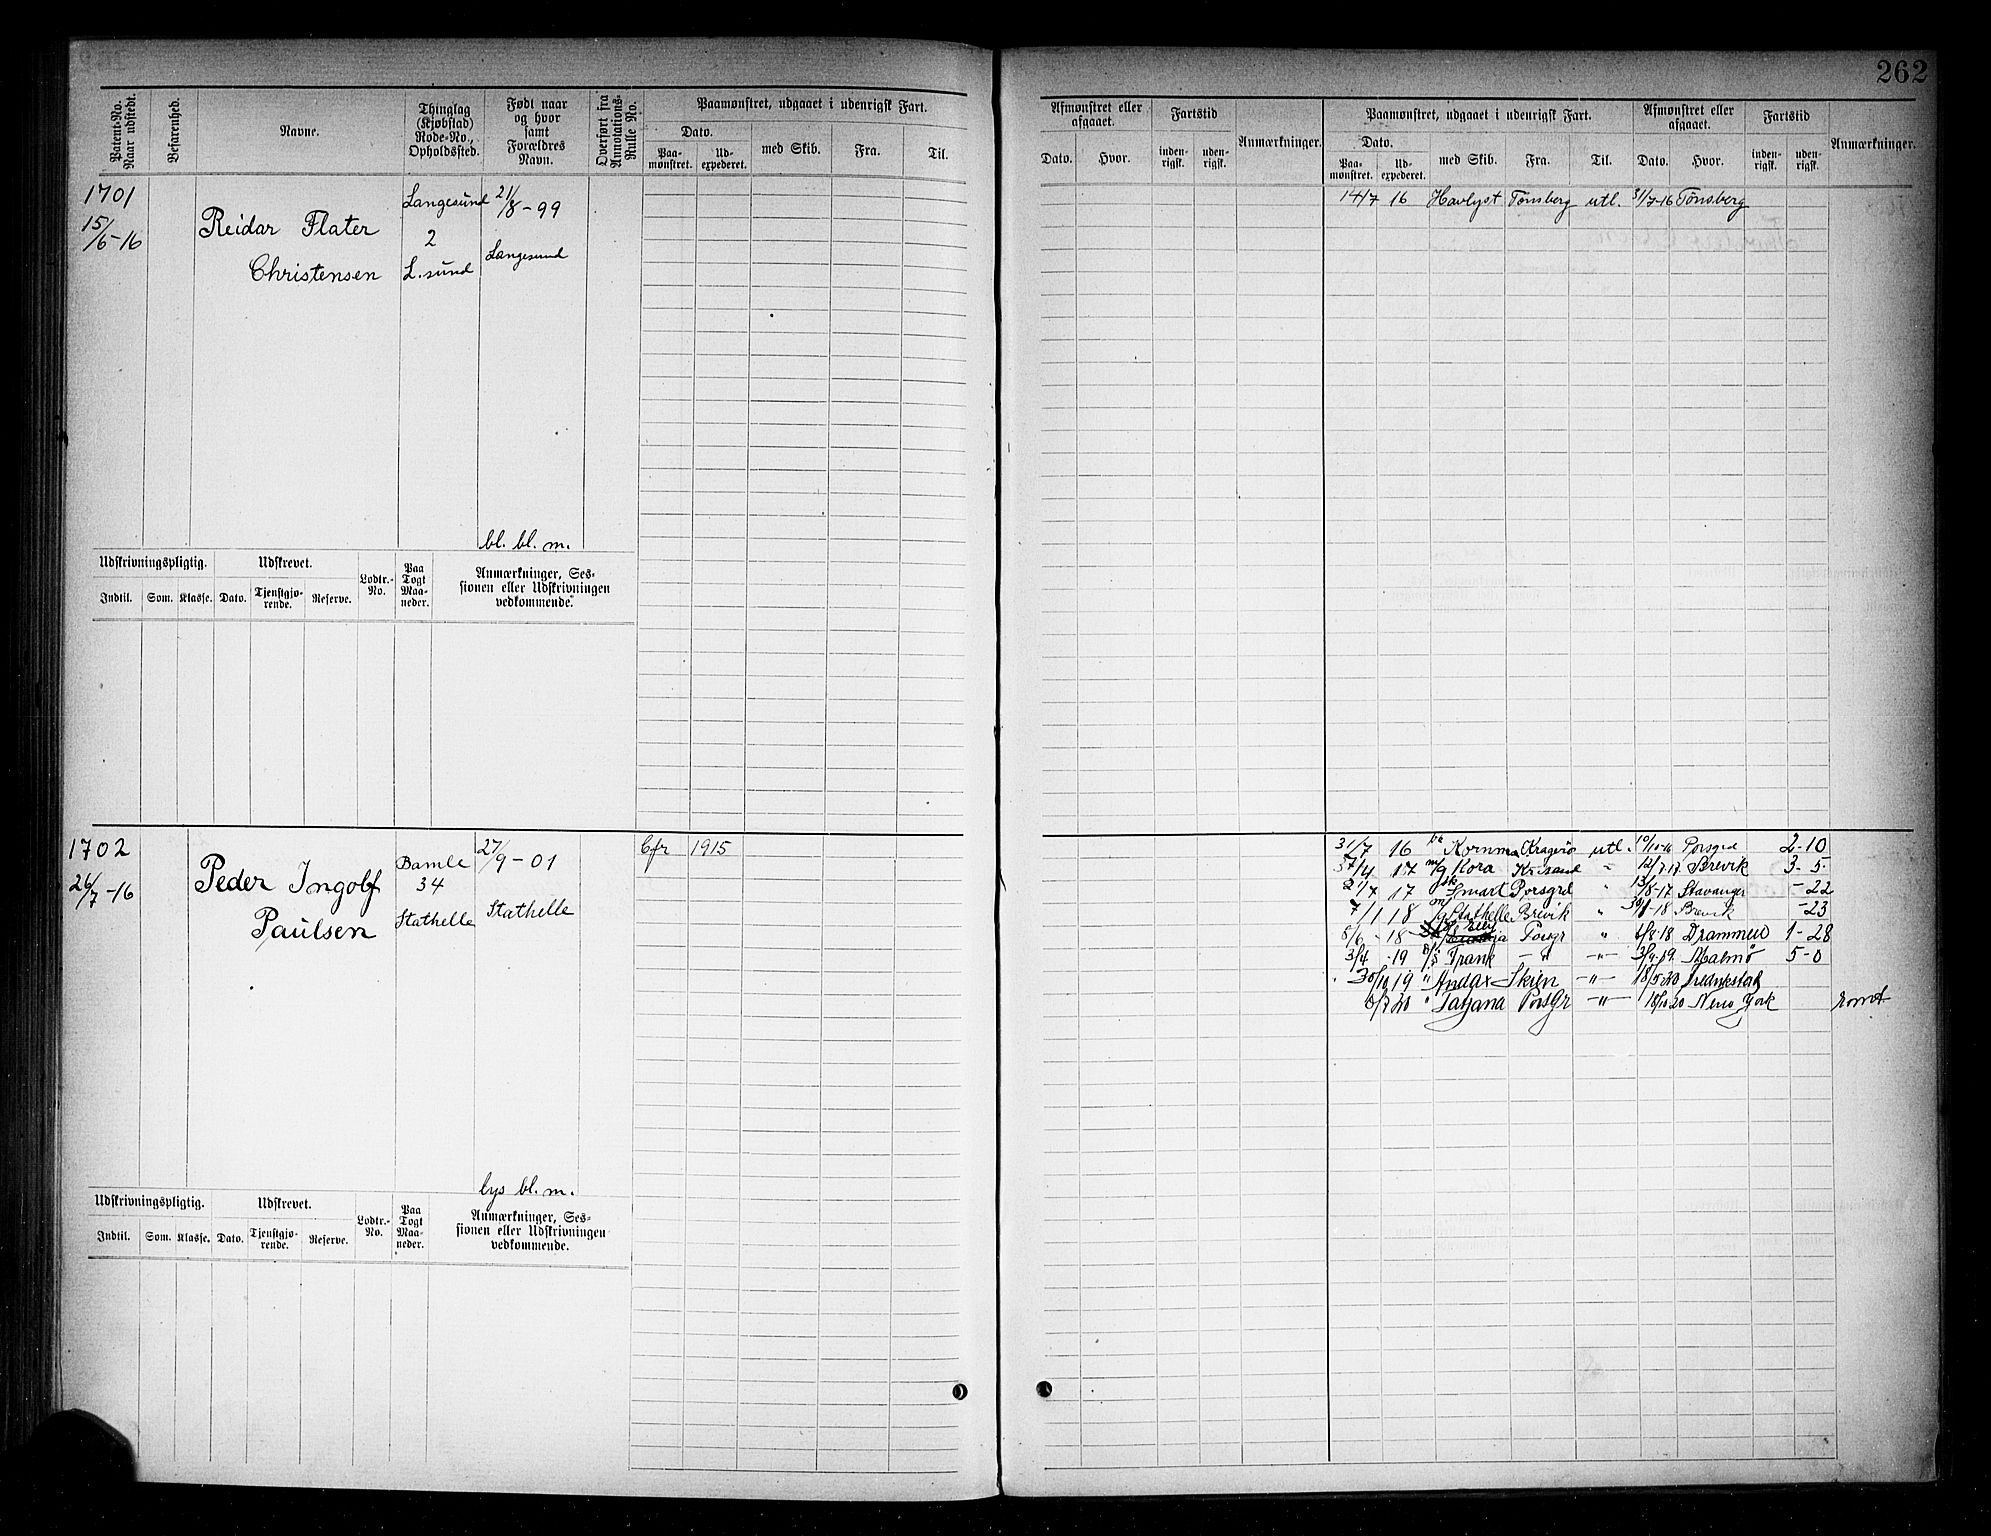 262
Patent-No. Naar udstedt.
Befarenhed.
Navne.
Thinglag (Kjøbstad) Rode-No., Opholdssted.
Født naar og hvor samt Forældres Navn.
Overført fra Annotations-Rulle No.
Paamønstret, udgaaet i udenrigsk Fart.
Dato.
Paa-mønstret. Ud-expederet. med Skib. Fra. Til.
Afmønstret eller afgaaet. Fartstid Anmærkninger. Paamønstret, udgaaet i udenrigsk Fart. Afmønstret eller afgaaet. Fartstid Anmærkninger.
Dato. Hvor. inden-rigsk. uden-rigsk. Dato. Paa-mønstret. Ud-expederet. med Skib. Fra. Til. Dato. Hvor. inden-rigsk. uden-rigsk.
1701
15/6-16
Reidar Flater
Christensen
Langesund
2
L.sund
21/8-99
Langesund
14/7 16 Havlyst Tønsberg utl. 31/7-16 Tønsberg
bl. bl. m.
Udskrivningspligtig. Udskrevet. Lodtr.-No. Paa Togt Maa-neder. Anmærkninger, Ses-
sionen eller Udskrivningen
vedkommende.
Indtil. Som. Klasse. Dato. Tjenstgjø-rende. Reserve.
1702
26/7-16
Peder Ingolf
Paulsen
Bamle
34
Stathelle
27/9-01
Stathelle
Cfr 1915
31/7 16 Kragerø utl. Porsgrd 2-10
17 Kora Krisand Brevik 3-5
17 Smart Porsgrd " 13/8-17 Stavanger -22
7/1 18 Stathelle Brevik " Brevik -23
8/6-18 Porsgr " Drammen 1-28
3/4-19 Frank - " - " - Malmø 5-0
30/10 19 " Skien - " - 18/5-20 Fredrikstad
20 " Tatjana Porsgr - " - 18/10 20 New York rømt
lys bl. m.
Udskrivningspligtig. Udskrevet. Lodtr.-No. Paa Togt Maa-neder. Anmærkninger, Ses-
sionen eller Udskrivningen
vedkommende.
Indtil. Som. Klasse. Dato. Tjenstgjø-rende. Reserve.